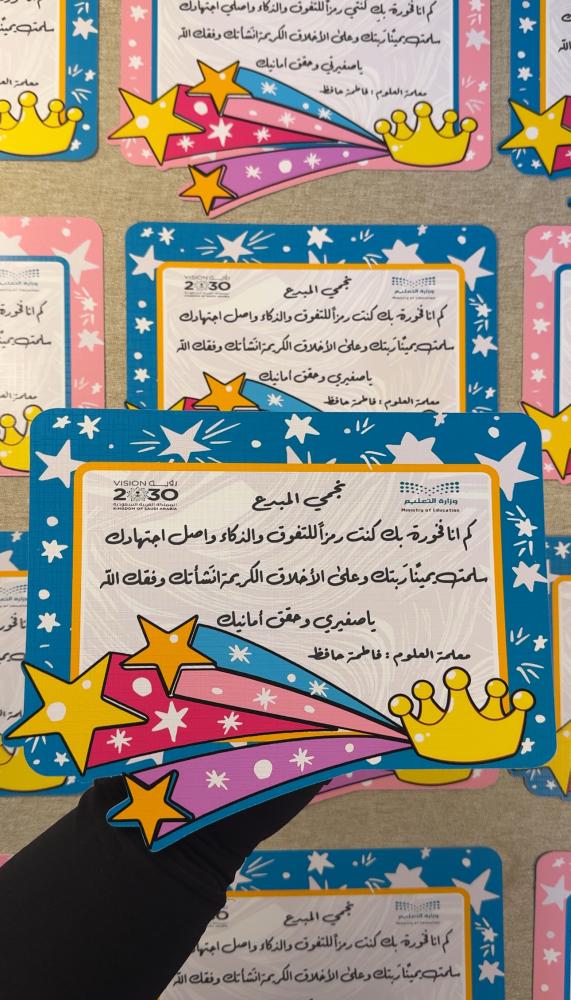 كم انا فخورة بك كنتي رمزاً للتفوق والذكاء واصلي اجتهادك
سلمت يمينًا ربتك وعلى الأخلاق الكريمة انشأتك وفقك الله
ياصغيرتي وحقق أمانيك
معلمة العلوم : فاطمة حافظ
VISION رؤيــة
2030
نجمي المبدع
وزارة التعليم
Ministry of Education
كم انا فخورة بك كنت رمزاً للتفوق والذكاء واصل اجتهادك
سلمت يمينًا ربتك وعلى الأخلاق الكريمة انشأتك وفقك الله
ياصغيري وحقق أمانيك
معلمة العلوم : فاطمة حافظ
VISION رؤيــة
2030
المملكة العربية السعودية
KINGDOM OF SAUDI ARABIA
نجمي المبدع
وزارة التعليم
Ministry of Education
كم انا فخورة بك كنت رمزاً للتفوق والذكاء واصل اجتهادك
سلمت يمينًا ربتك وعلى الأخلاق الكريمة انشأتك وفقك الله
ياصغيري وحقق أمانيك
معلمة العلوم : فاطمة حافظ
نجمي المبدع
وزارة التعليم
Ministry of Education
كم انا فخورة بك كنت رمزاً للتفوق والذكاء واصل
سلمت يمينًا ربتك وعلى الأخلاق الكريمة انشأتك